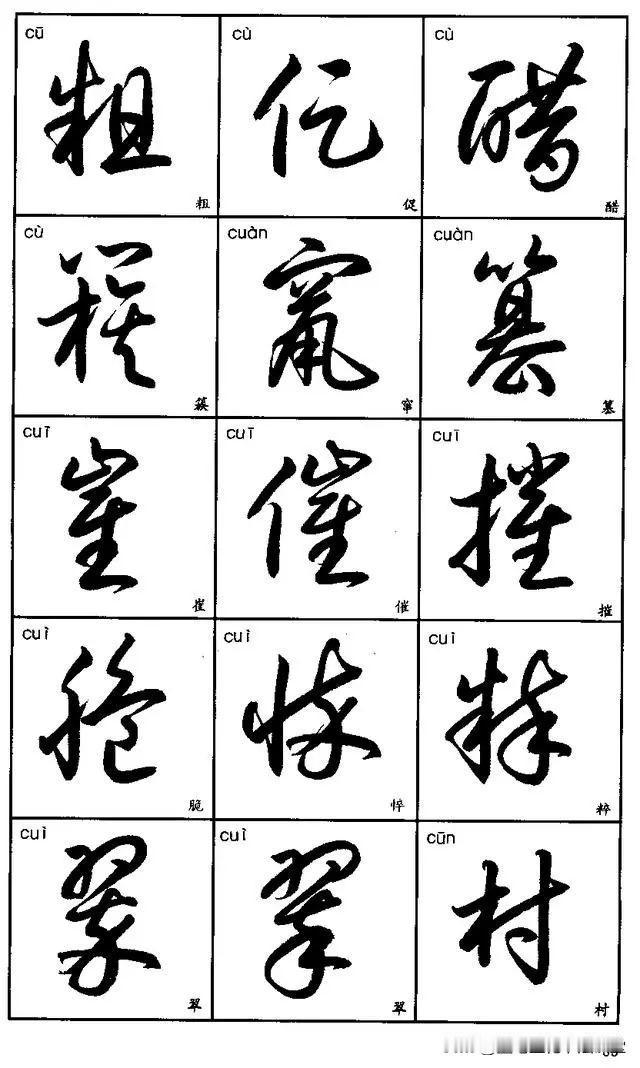 cū cù cù
粗 促 醋
粗 促 醋
cù cuàn cuàn
簇 窜 篡
簇 窜 篡
cuī cuī cuī
崔 催 摧
崔 催 摧
cuì cuì cuì
脆 悴 粹
脆 悴 粹
cuì cuì cūn
翠 翠 村
翠 翠 村